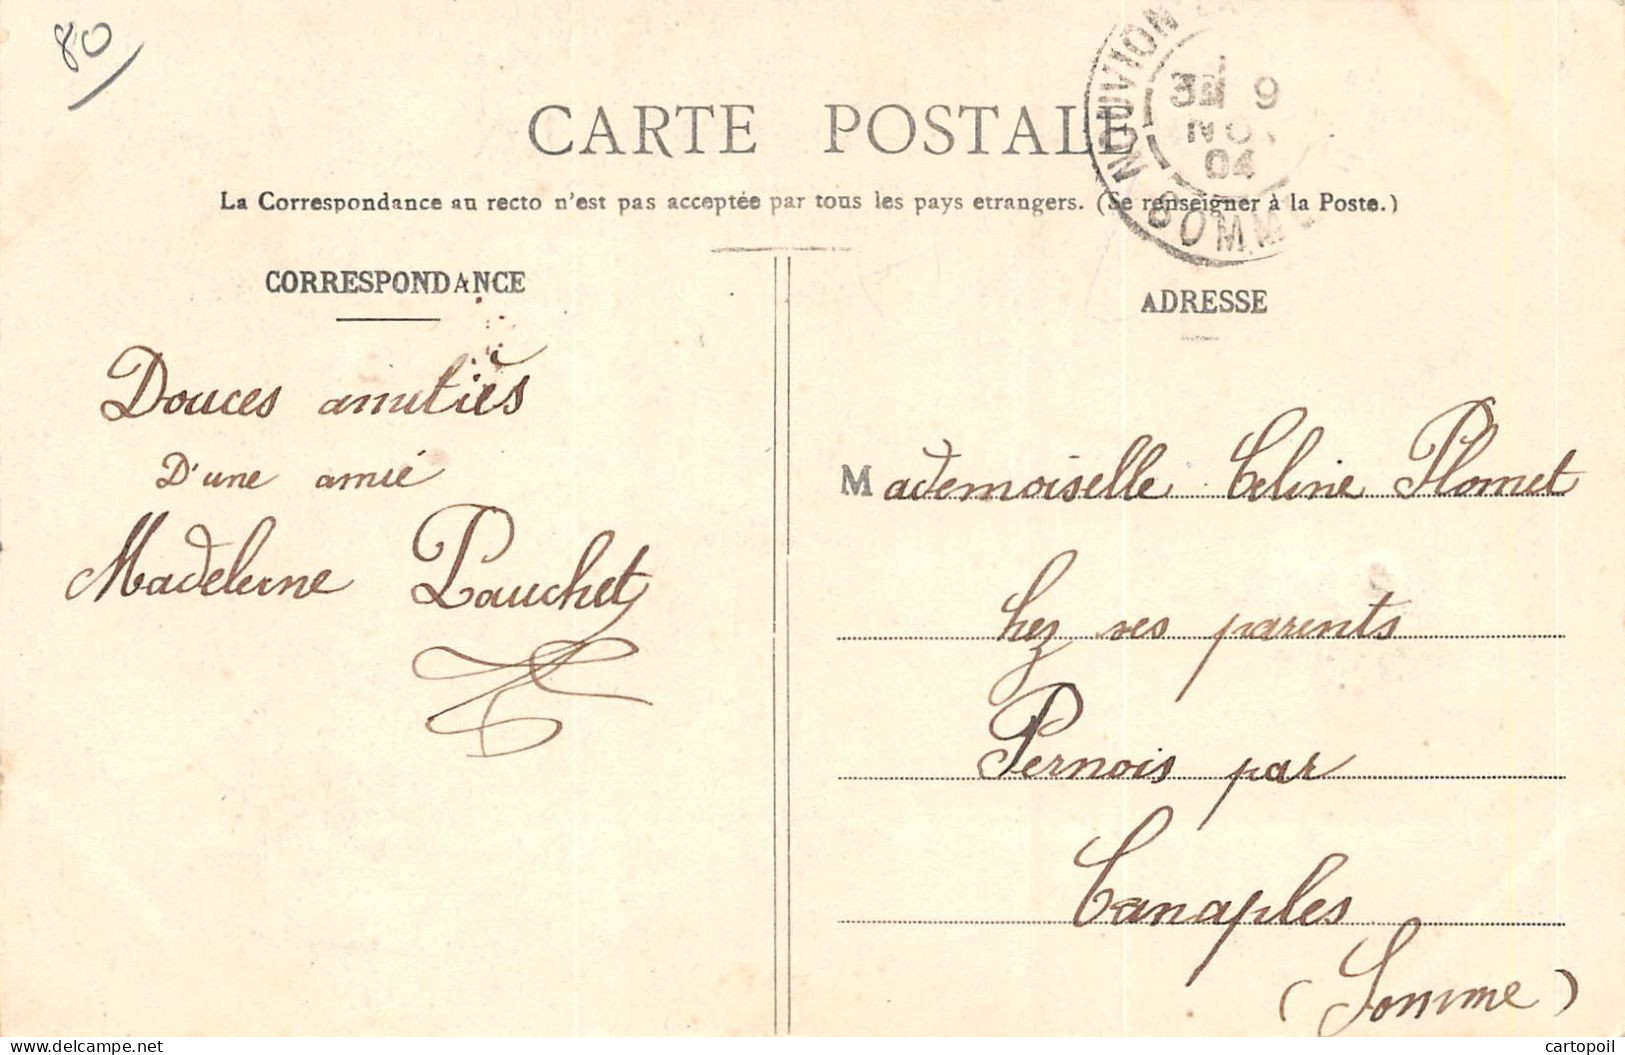 80
CARTE POSTALE
La Correspondance au recto n'est pas acceptée par tous les pays etrangers. (Se renseigner à la Poste.)
NOUVION
9
NO
04
SOMME
CORRESPONDANCE
Douces amitiés
D'une amié
Madeleine Pauchet
ADRESSE
Mademoiselle Celine Plomet
hez ses parents
Pernois par
Canaples
(Somme)
Delcampe.net
cartopoil